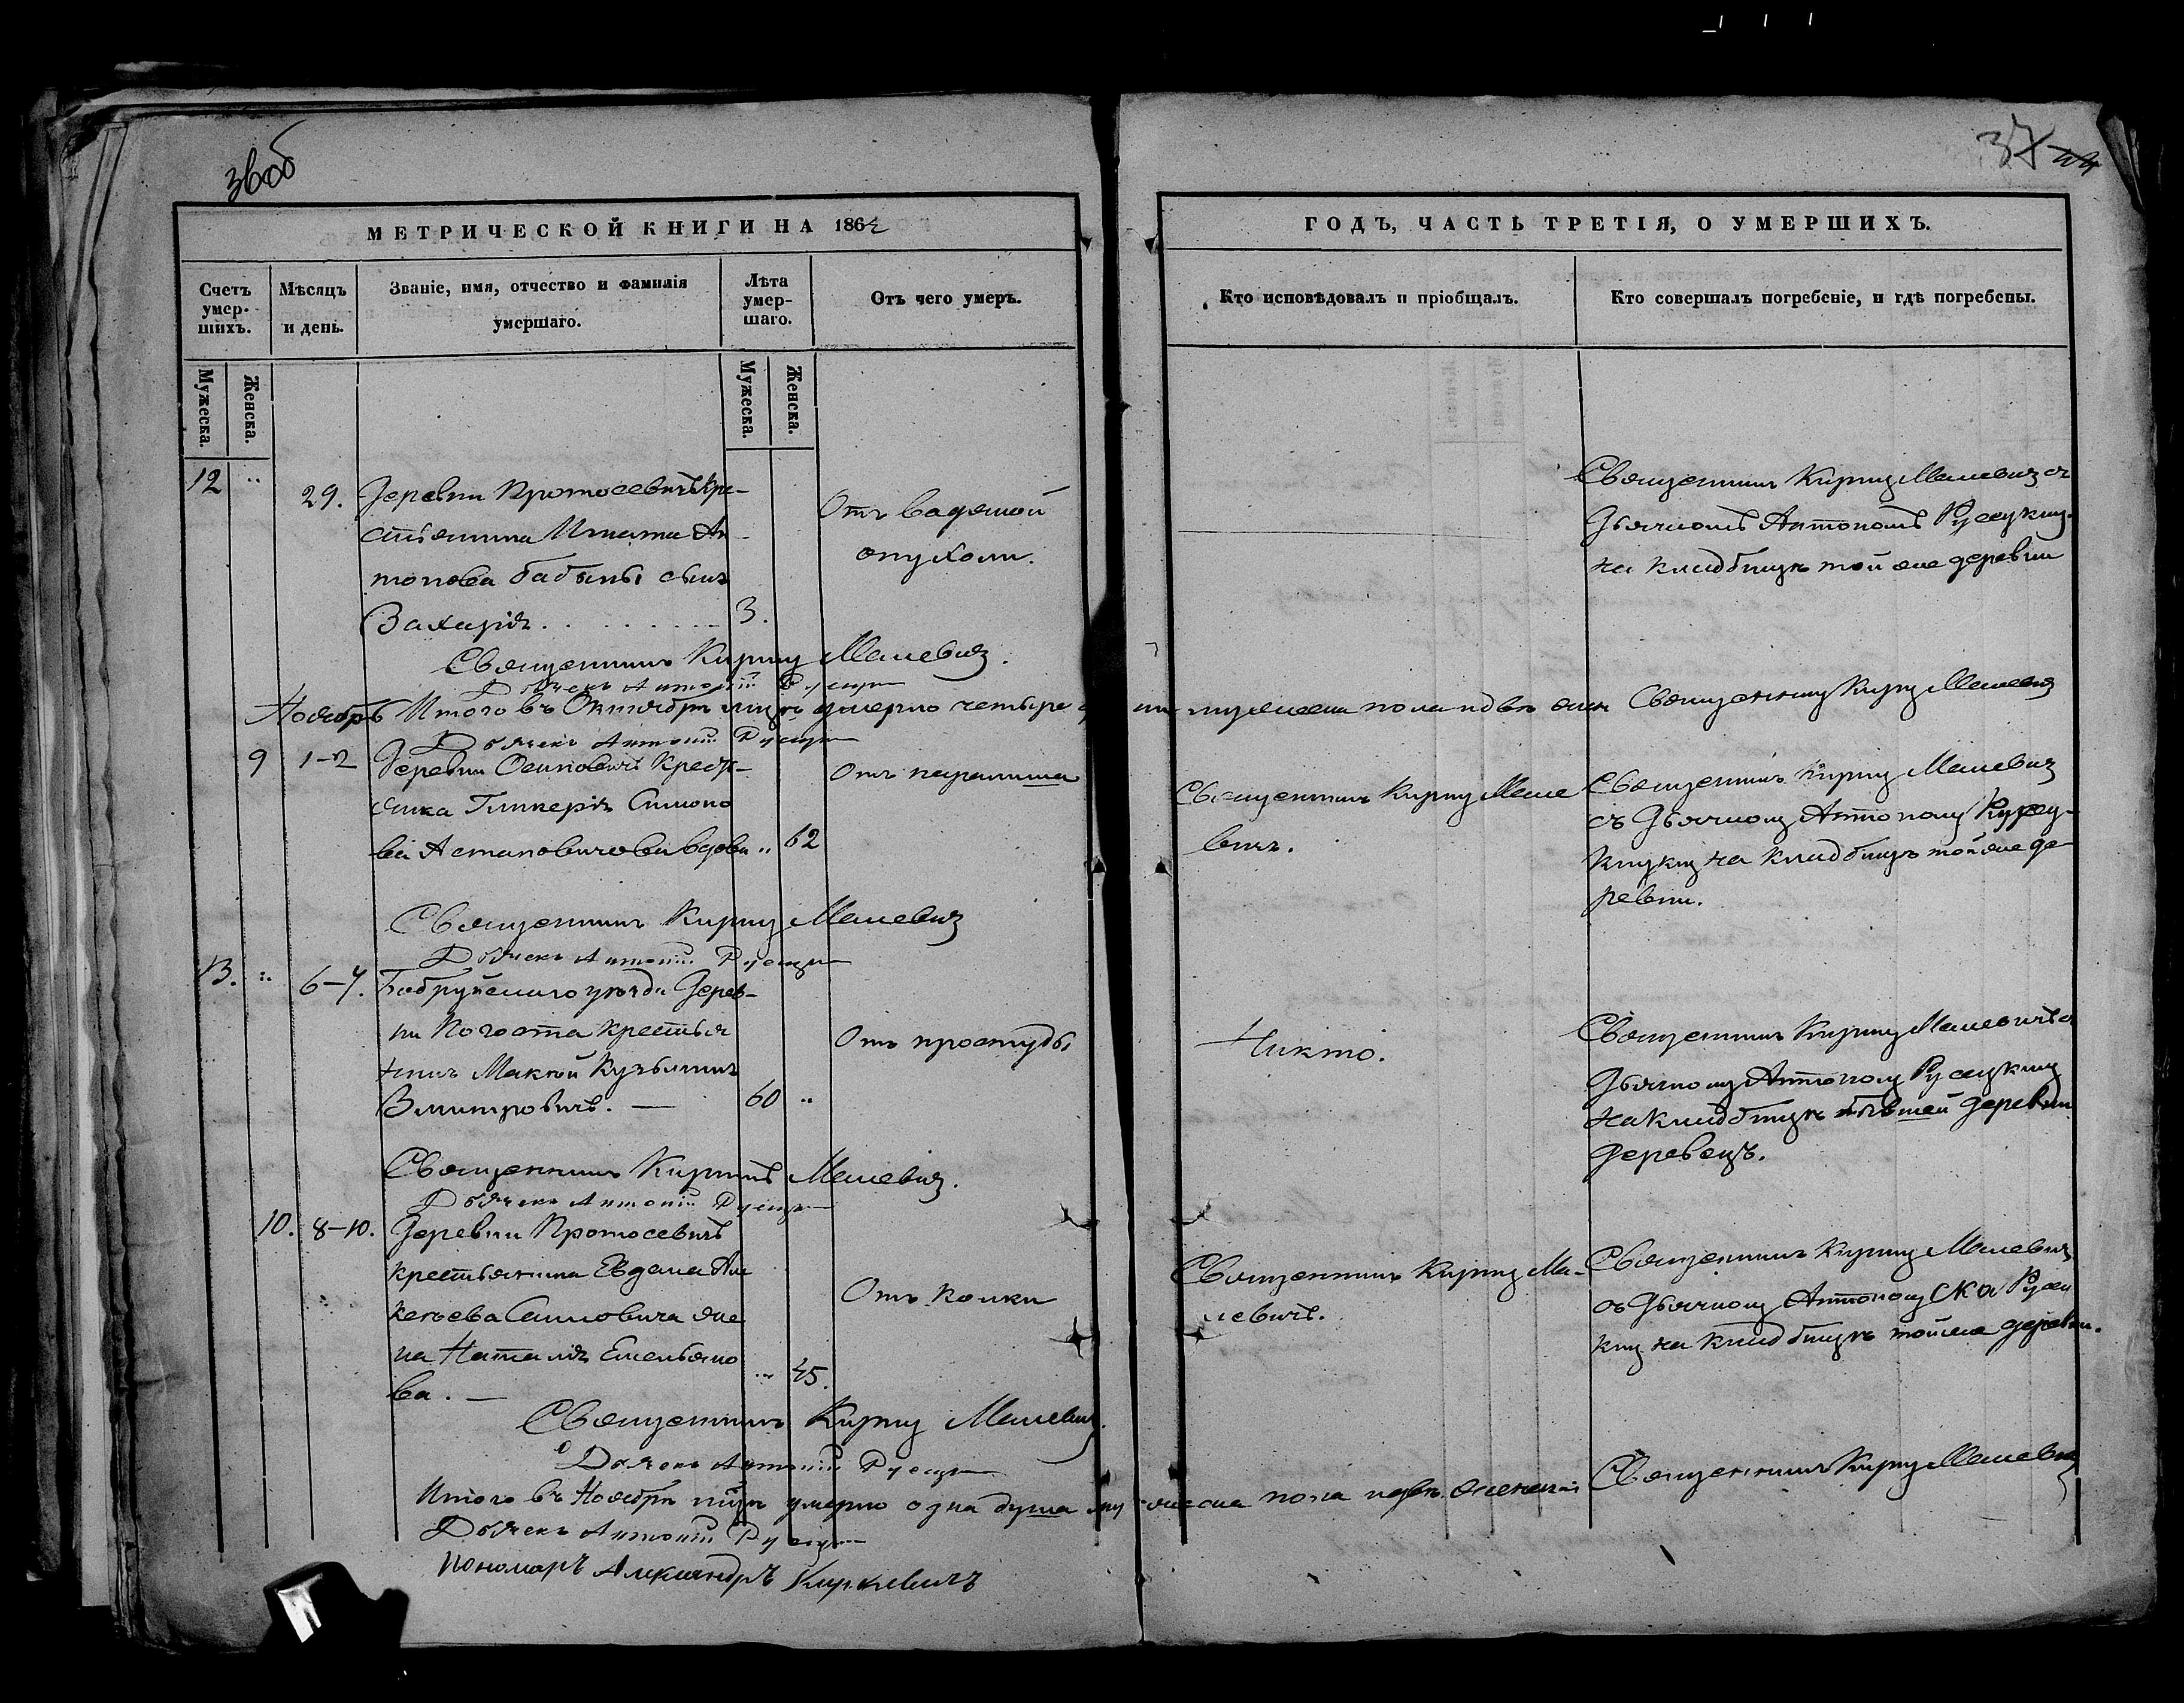 36об
37
МЕТРИЧЕСКОЙ КНИГИ НА 1862
ГОДЪ, ЧАСТЬ ТРЕТІЯ, О УМЕРШИХЪ.
Счетъ умер-
шихъ.
Мѣсяцъ
и день.
Званіе, имя, отчество и фамилія
умершаго.
Лѣта
умер-
шаго.
Отъ чего умеръ.
Кто исповѣдовалъ и пріобщалъ.
Кто совершалъ погребеніе, и гдѣ погребены.
Мужеска.
Женска.
Мужеска.
Женска.
12
29.
Деревни Протосевичъ кре-
стьянина Игната Ан-
тонова бабыны сынъ
Захарія
3.
Отъ водяной
опухоли.
Священникъ Кирилъ Малевичъ съ
Дьячкомъ Антономъ
на кладбищѣ той же деревни
Священникъ Кирилъ Малевичъ.
Дьячекъ Антоній
Ноябрь
Итого въ Октябрѣ мцѣ умерло четыре мужеска пола и двѣ жен
Священникъ Кирилъ Малевичъ
Дьячекъ Антоній
9
1-2
Деревни Осиповичъ Крестья-
янка Гликерія Симоно
ва Астаповичова вдова
62
Отъ паралича
Священникъ Кирилъ Мале
вичъ.
Священникъ Кирилъ Малевичъ
съ Дьячкомъ Антономъ
на кладбищѣ той же де-
ревни.
Священникъ Кирилъ Малевичъ
Дьячекъ Антоній
13.
6-7.
Бобруйскаго уѣзда Дерев-
ни Погоста крестья
нинъ Мокѣй Кузьминъ
60
Отъ простуды
Никто.
Священникъ Кирилъ Малевичъ съ
Дьячкомъ Антономъ
на кладбищѣ бывшей деревни
Деревецъ.
Священникъ Кирилъ Малевичъ.
Дьячекъ Антоній
10.
8-10.
Деревни Протосевичъ
крестьянина
же
на Наталія Емельяно
ва.
45.
Отъ колики
Священникъ Кирилъ Ма-
левичъ.
Священникъ Кирилъ Малевичъ
съ Дьячкомъ Антономъ
на кладбищѣ той же деревни.
Священникъ Кирилъ Малевичъ.
Дьячекъ Антоній
Итого въ Ноябрѣ мцѣ умерло одна душа мужеска пола и двѣ женска
Священникъ Кирилъ Малевичъ
Дьячекъ Антоній
Пономаръ Александръ